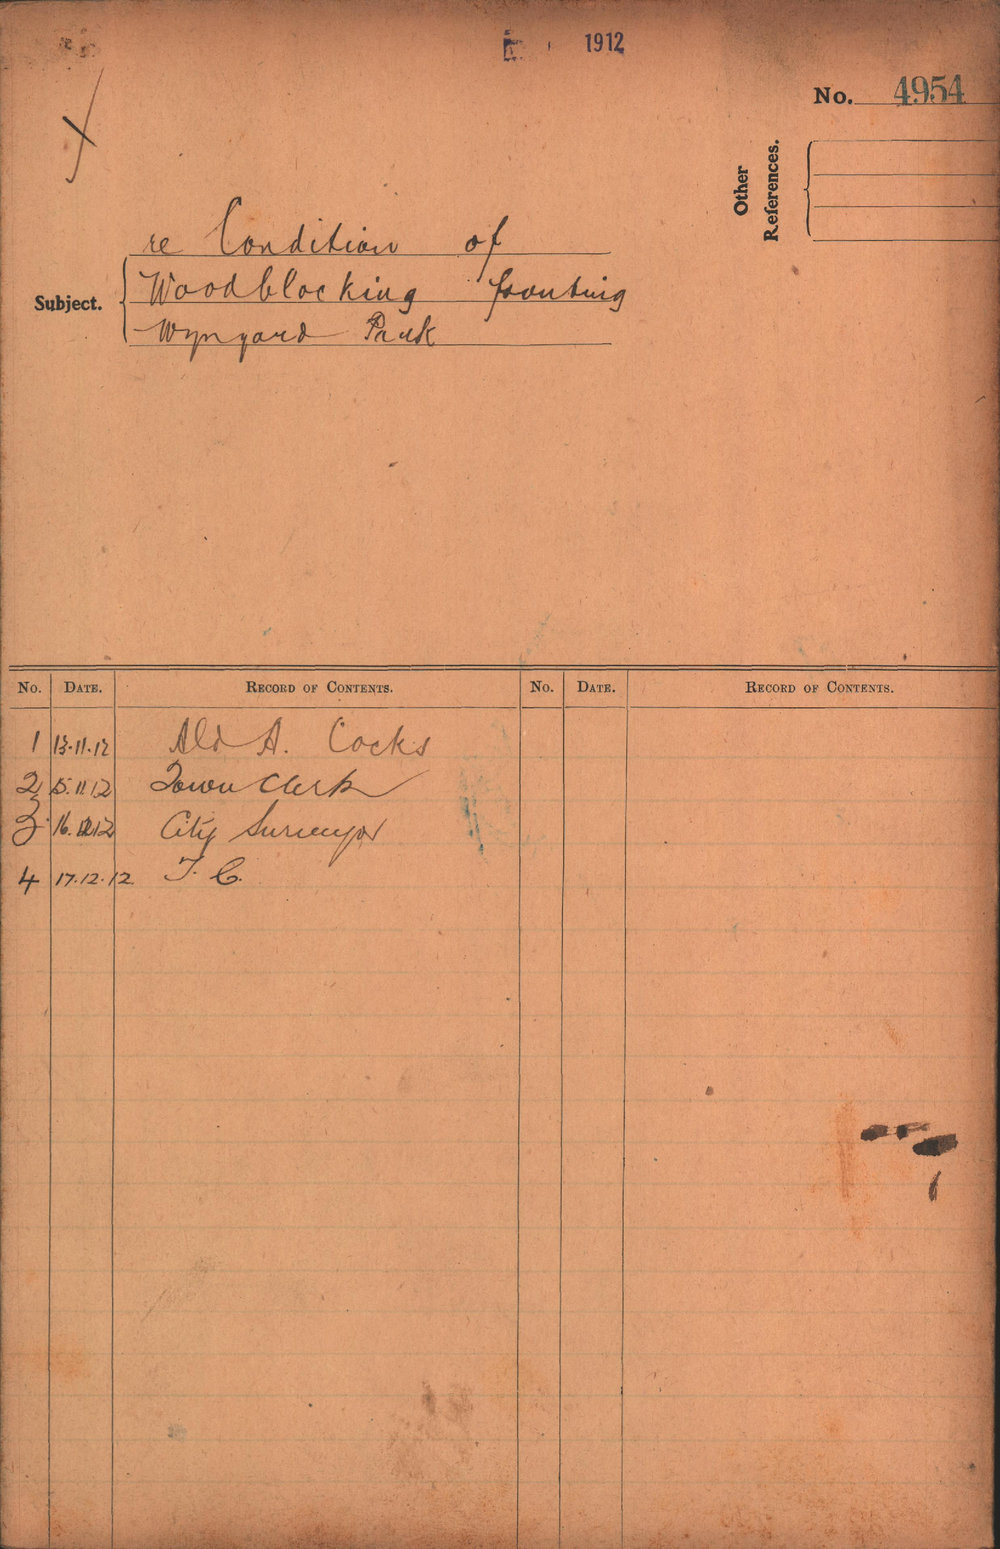 1912
No. 4954
Other References.
re Condition of
Subject. Woodblocking fronting
Wynyard Park
No. DATE. RECORD OF CONTENTS. No. DATE. RECORD OF CONTENTS.
1 13.11.12 Ald A. Cocks
2 15.11.12 Town Clerk
3 16.12.12 City Surveyor
4 17.12.12. T. C.